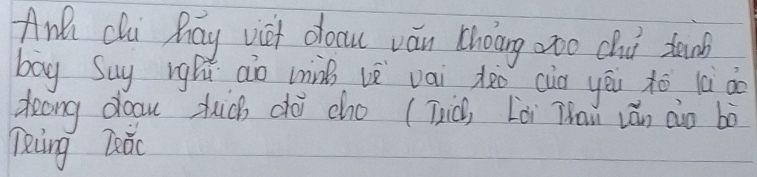 Anh chị hãy viết đoạn văn khoảng 200 chữ trình
bày suy nghĩ của mình về vai trò của yếu tố kì ảo
trong đoạn trích đã cho (Trích, Lời Than vãn của bà
Trưng Trắc